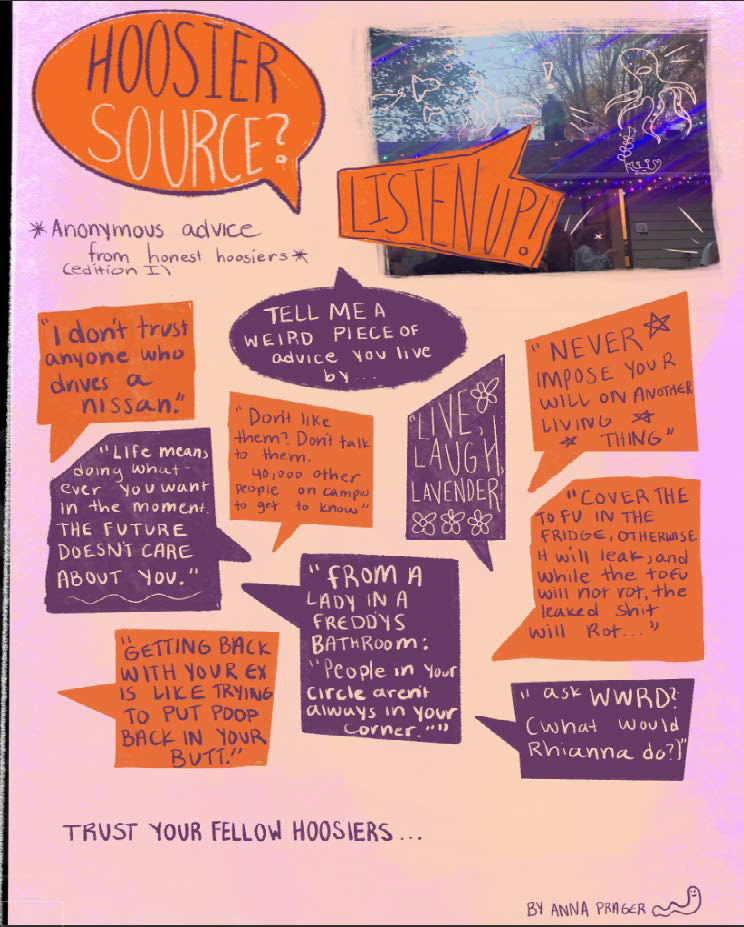 HOOSIER
SOURCE?
LISTEN UP!
*Anonymous advice
from honest hoosiers*
(edition I)
TELL ME A
WEIRD PIECE OF
advice you live
by...
"I don't trust
anyone who
drives a
nissan."
"Don't like
them? Don't talk
to them.
40,000 other
people on campus
to get to know"
"LIVE,
LAUGH,
LAVENDER
"NEVER
IMPOSE YOUR
WILL ON ANOTHER
LIVING
THING"
"LIFE means
doing what-
ever you want
in the moment.
THE FUTURE
DOESN'T CARE
ABOUT YOU."
"COVER THE
TOFU IN THE
FRIDGE, OTHERWISE
it will leak, and
while the tofu
will not rot, the
leaked shit
will Rot..."
"FROM A
LADY IN A
FREDDYS
BATHROOM:
"People in your
circle aren't
always in your
corner.""
"GETTING BACK
WITH YOUR EX
IS LIKE TRYING
TO PUT POOP
BACK IN YOUR
BUTT."
"ask WWRD?
(what would
Rhianna do?)"
TRUST YOUR FELLOW HOOSIERS...
BY ANNA PRAGER